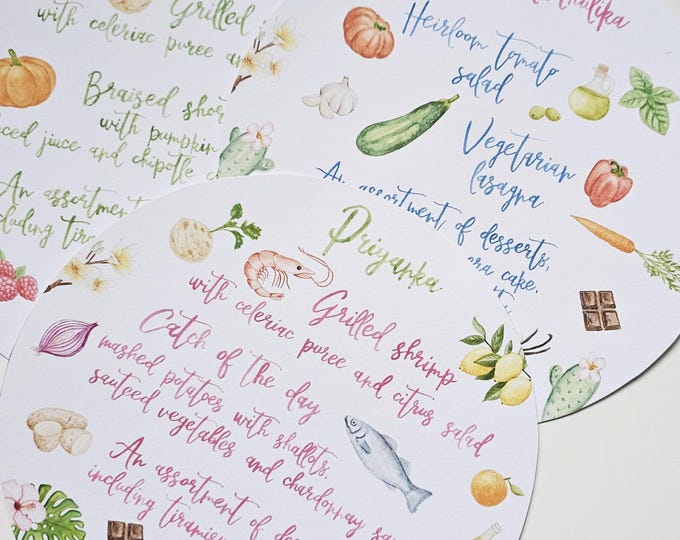 Grilled
with celeriac puree
Braised
with pumpkin
juice and chipotle
An assortment
including
Heirloom tomato
salad
Vegetarian
lasagna
An assortment of desserts,
cake,
Priyanka
Grilled shrimp
with celeriac puree and citrus salad
Catch of the day
mashed potatoes with shallots,
sauteed vegetables and chardonnay
An assortment of
including